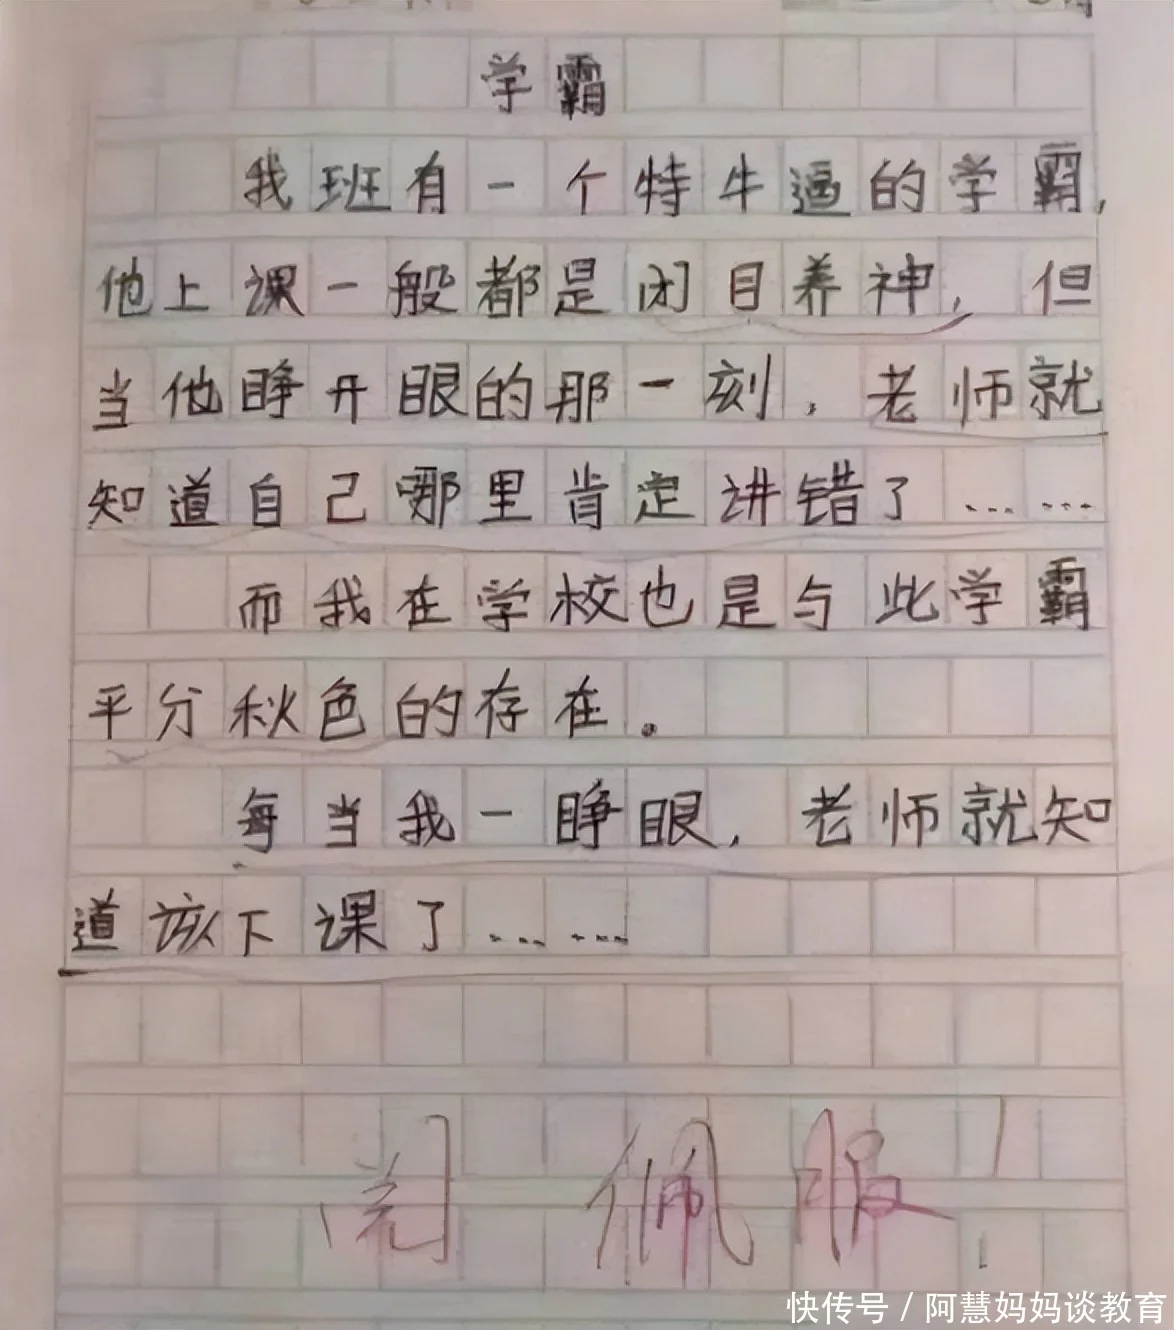 学霸
我班有一个特牛逼的学霸,
他上课一般都是闭目养神,但
当他睁开眼的那一刻,老师就
知道自己哪里肯定讲错了……
而我在学校也是与此学霸
平分秋色的存在。
每当我一睁眼,老师就知
道该下课了……
阅 佩服!
快传号 / 阿慧妈妈谈教育